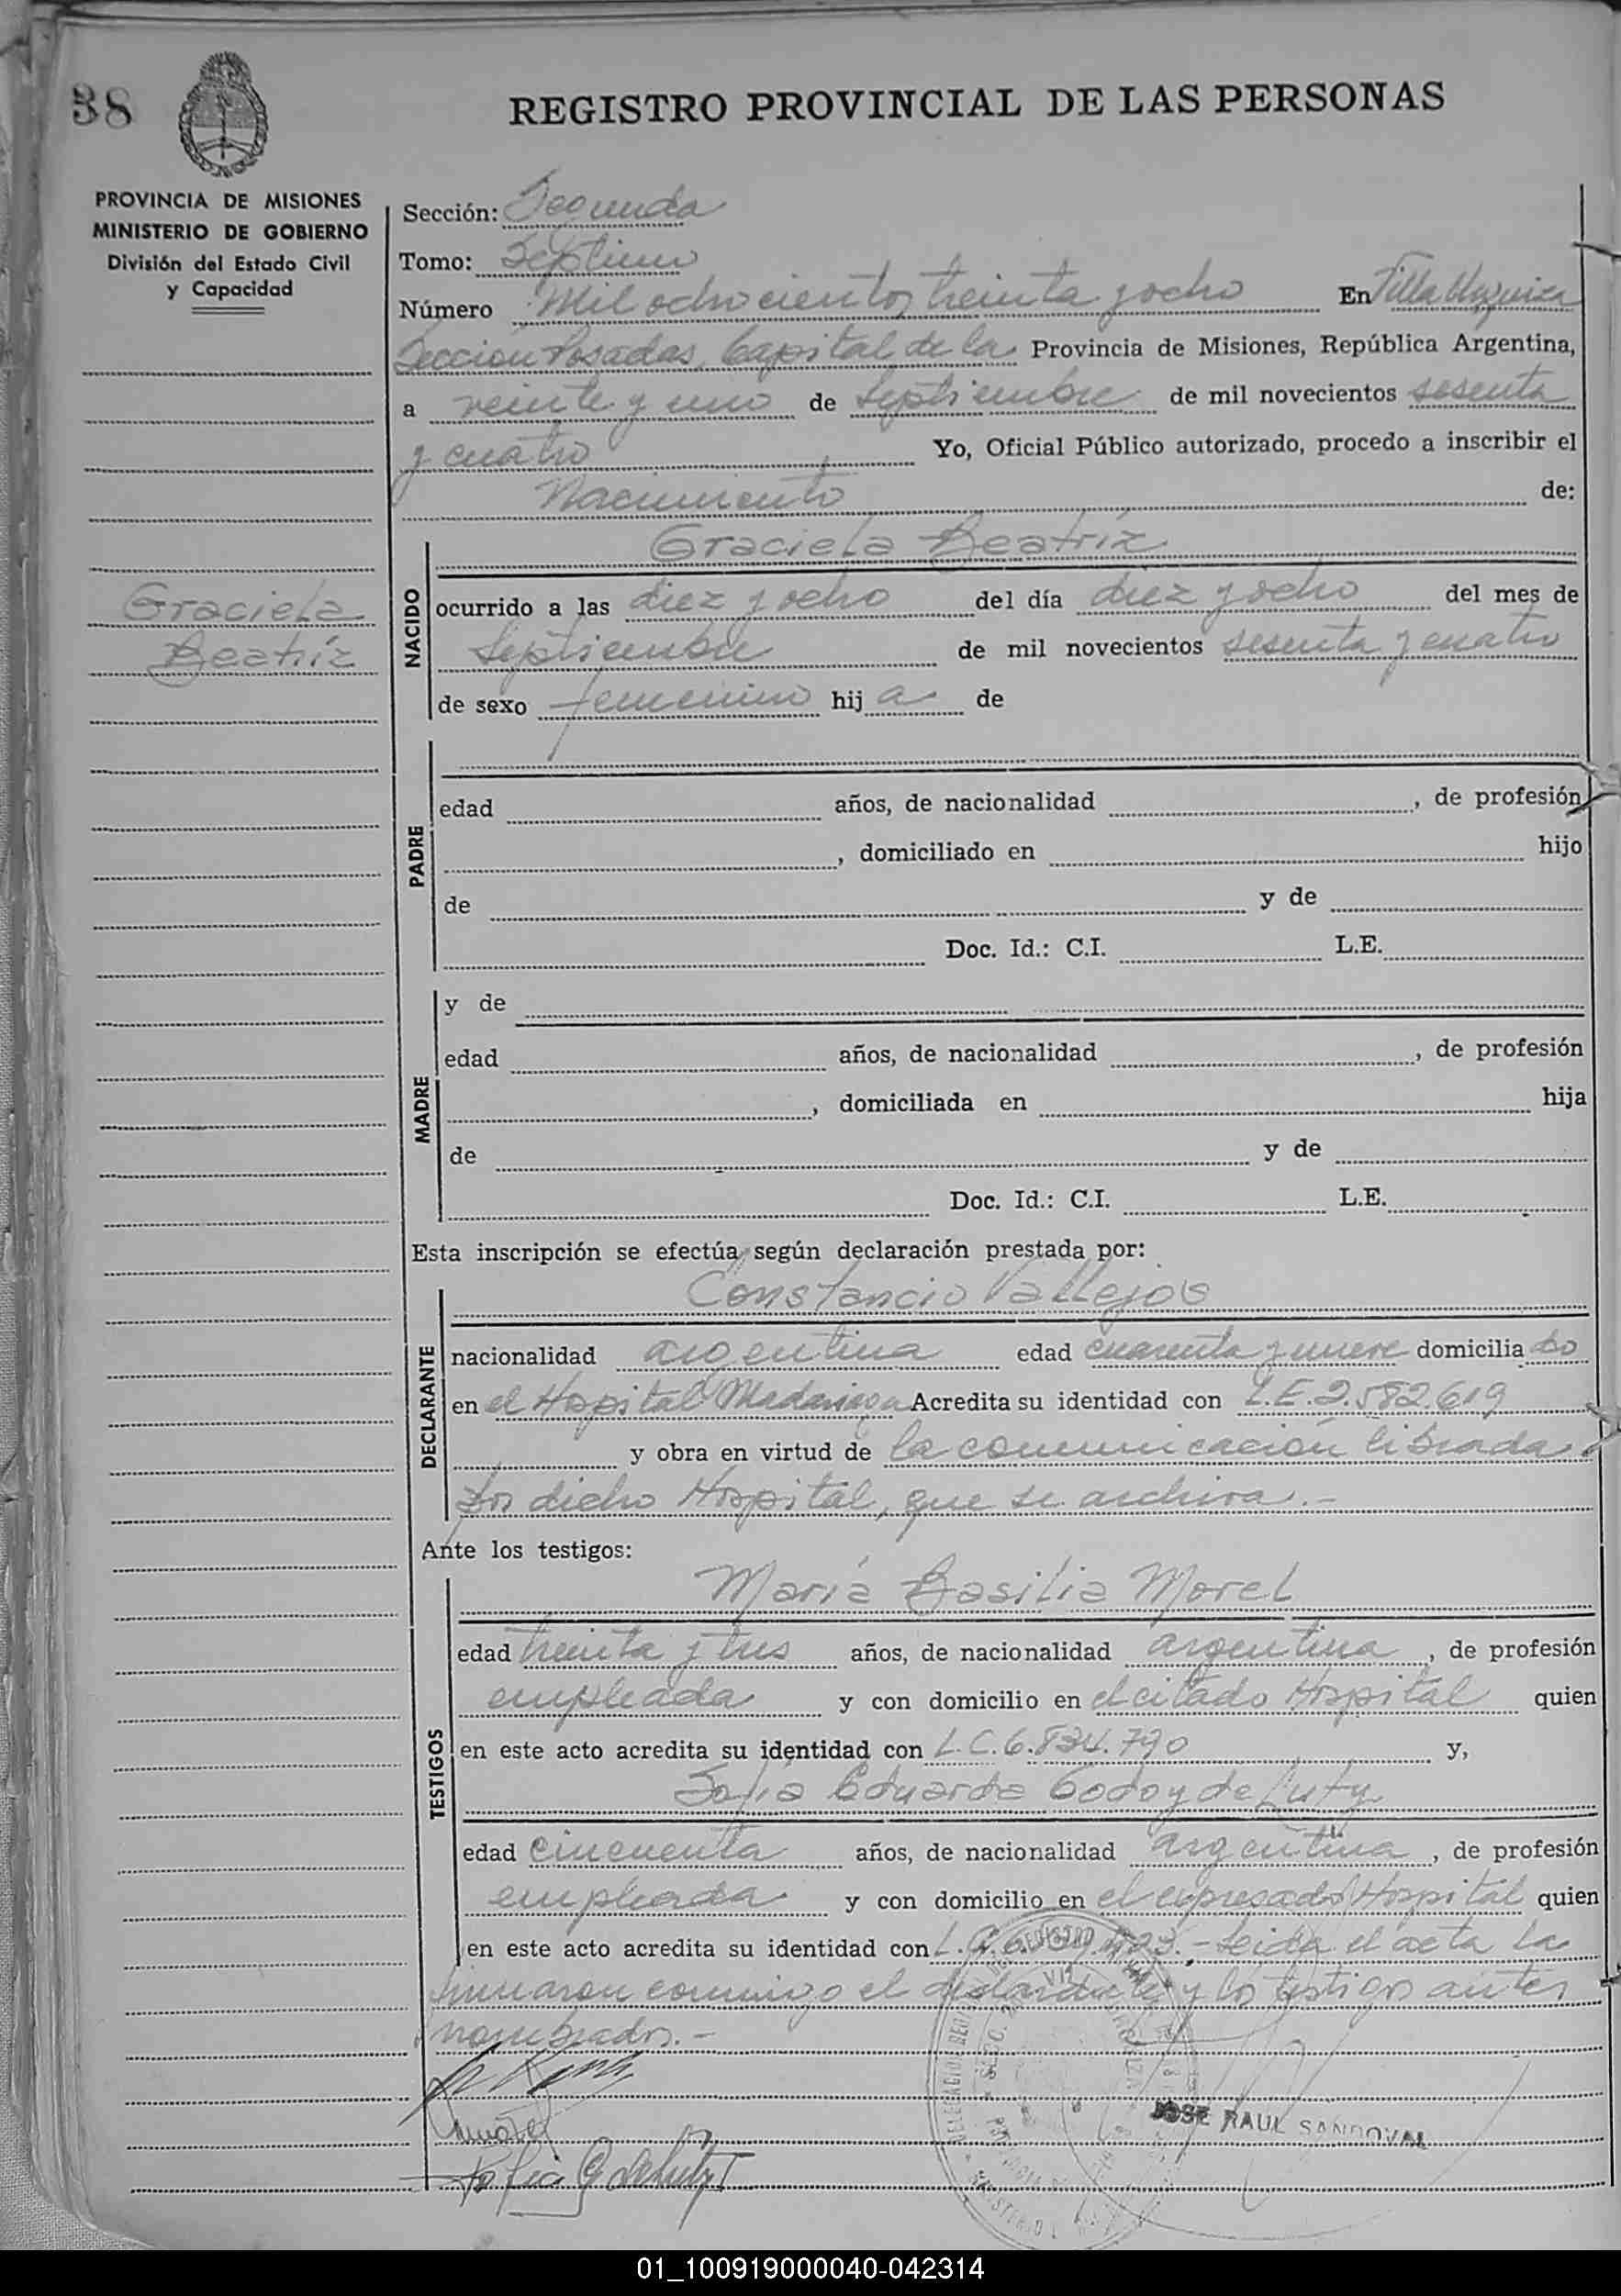 38
REGISTRO PROVINCIAL DE LAS PERSONAS
PROVINCIA DE MISIONES
MINISTERIO DE GOBIERNO
División del Estado Civil
y Capacidad
Sección: Segunda
Tomo: Septimo
Número Mil ochocientos treinta y ocho En Villa Urquiza
Sección Posadas, Capital de la Provincia de Misiones, República Argentina,
a veinte y uno de Septiembre de mil novecientos sesenta
y cuatro Yo, Oficial Público autorizado, procedo a inscribir el
Nacimiento de:
Graciela Beatríz
Graciela
Beatríz
NACIDO
ocurrido a las diez y ocho del día diez y ocho del mes de
Septiembre de mil novecientos sesenta y cuatro
de sexo femenino hij a de
PADRE
edad años, de nacionalidad , de profesión
, domiciliado en hijo
de y de
Doc. Id.: C.I. L.E.
MADRE
y de
edad años, de nacionalidad , de profesión
, domiciliada en hija
de y de
Doc. Id.: C.I. L.E.
Esta inscripción se efectúa según declaración prestada por:
DECLARANTE
Constancio Vallejos
nacionalidad argentina edad cuarenta y nueve domicilia do
en el Hospital Madariaga Acredita su identidad con L.E. 2.582.619
y obra en virtud de la comunicación librada
por dicho Hospital, que se archiva.-
Ante los testigos:
TESTIGOS
María Basilia Morel
edad treinta y tres años, de nacionalidad argentina, de profesión
empleada y con domicilio en el citado Hospital quien
en este acto acredita su identidad con L.C. 6.834.790 y,
Sofía Eduarda Godoy de Luty
edad cincuenta años, de nacionalidad argentina, de profesión
empleada y con domicilio en el expresado Hospital quien
en este acto acredita su identidad con L.C. - Leida el acta la
firmaron conmigo el declarante y los testigos antes
nombrados.-
JOSE RAUL SANDOVAL
01_100919000040-042314